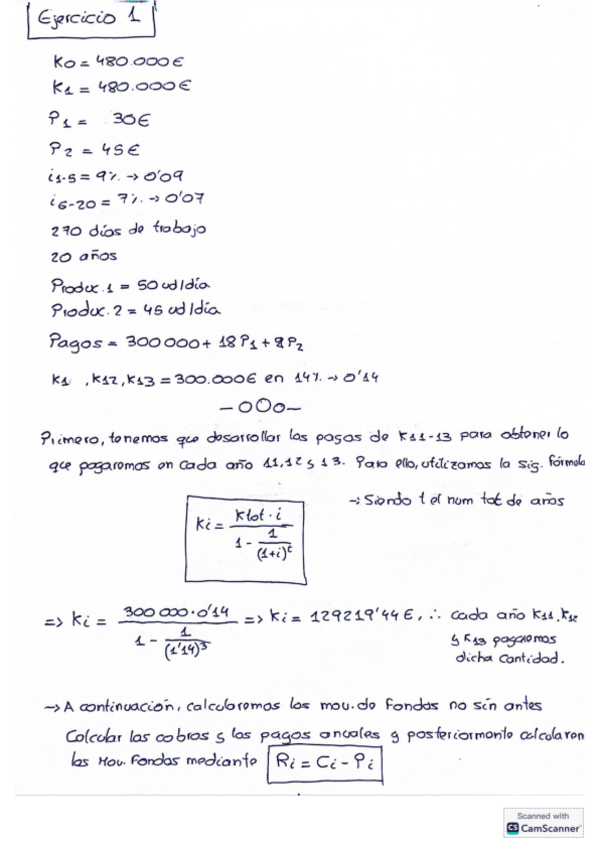 Ejercicio 1
K0 = 480.000€
K1 = 480.000€
P1 = 30€
P2 = 45€
i1-5 = 9% → 0'09
i6-20 = 7% → 0'07
270 días de trabajo
20 años
Produc. 1 = 50 ud/día
Produc. 2 = 45 ud/día
Pagos = 300000 + 18P1 + 9P2
K1 , K12, K13 = 300.000€ en 14% → 0'14
—oOo—
Primero, tenemos que desarrollar los pagos de K11-13 para obtener lo
que pagaremos en cada año 11, 12 y 13. Para ello, utilizamos la sig. fórmula
Ki = Ktot · i / (1 - 1/(1+i)^t)
→ Siendo t el num tot de años
=> Ki = 300 000 · 0'14 / (1 - 1/(1'14)^3) => Ki = 129219'44€, ∴ cada año K11, K12
y K13 pagaremos
dicha cantidad.
→ A continuación, calcularemos los mov. de fondos no sin antes
Calcular los cobros y los pagos anuales y posteriormente calcularem
los Mov. Fondos mediante Ri = Ci - Pi
Scanned with
CS CamScanner